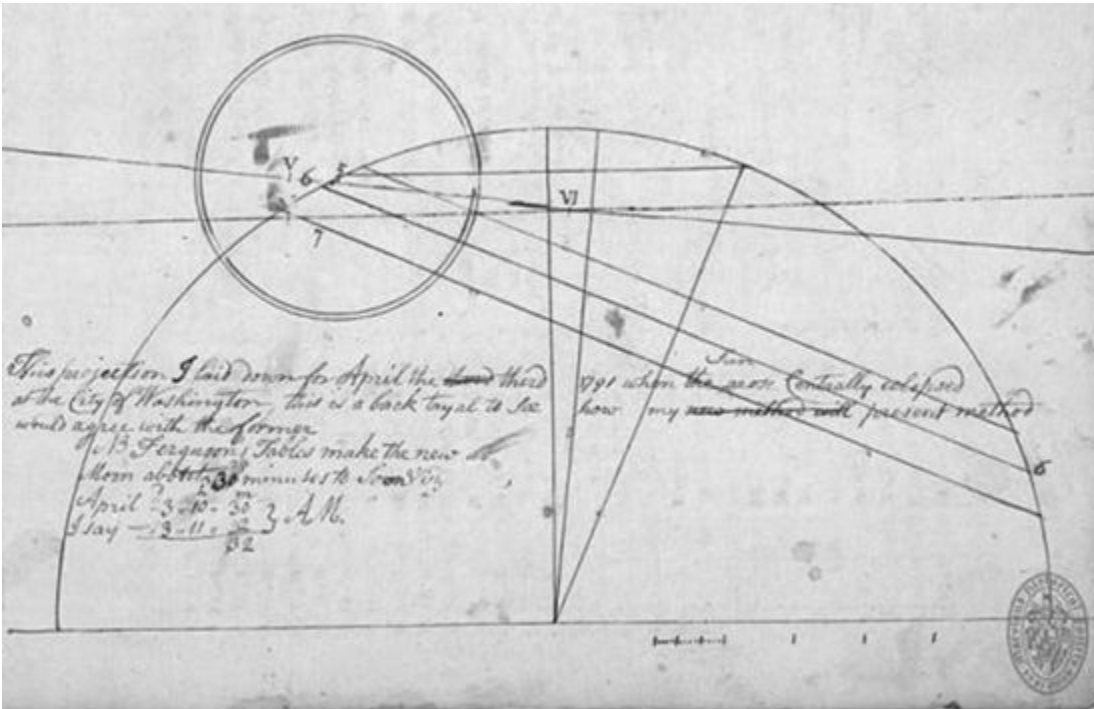 Y 6 5
VI
7
Sun
This projection I laid down for April the third 1791 when the Centrally eclipsed
at the City of Washington, this is a back tryal to See how my new method will present method
would agree with the former
NB Ferguson's Tables make the new
Moon about 30 minutes to Soon Viz
April 3 - 10 - 30
I say 3 - 11 - 2 } A M.
32
6